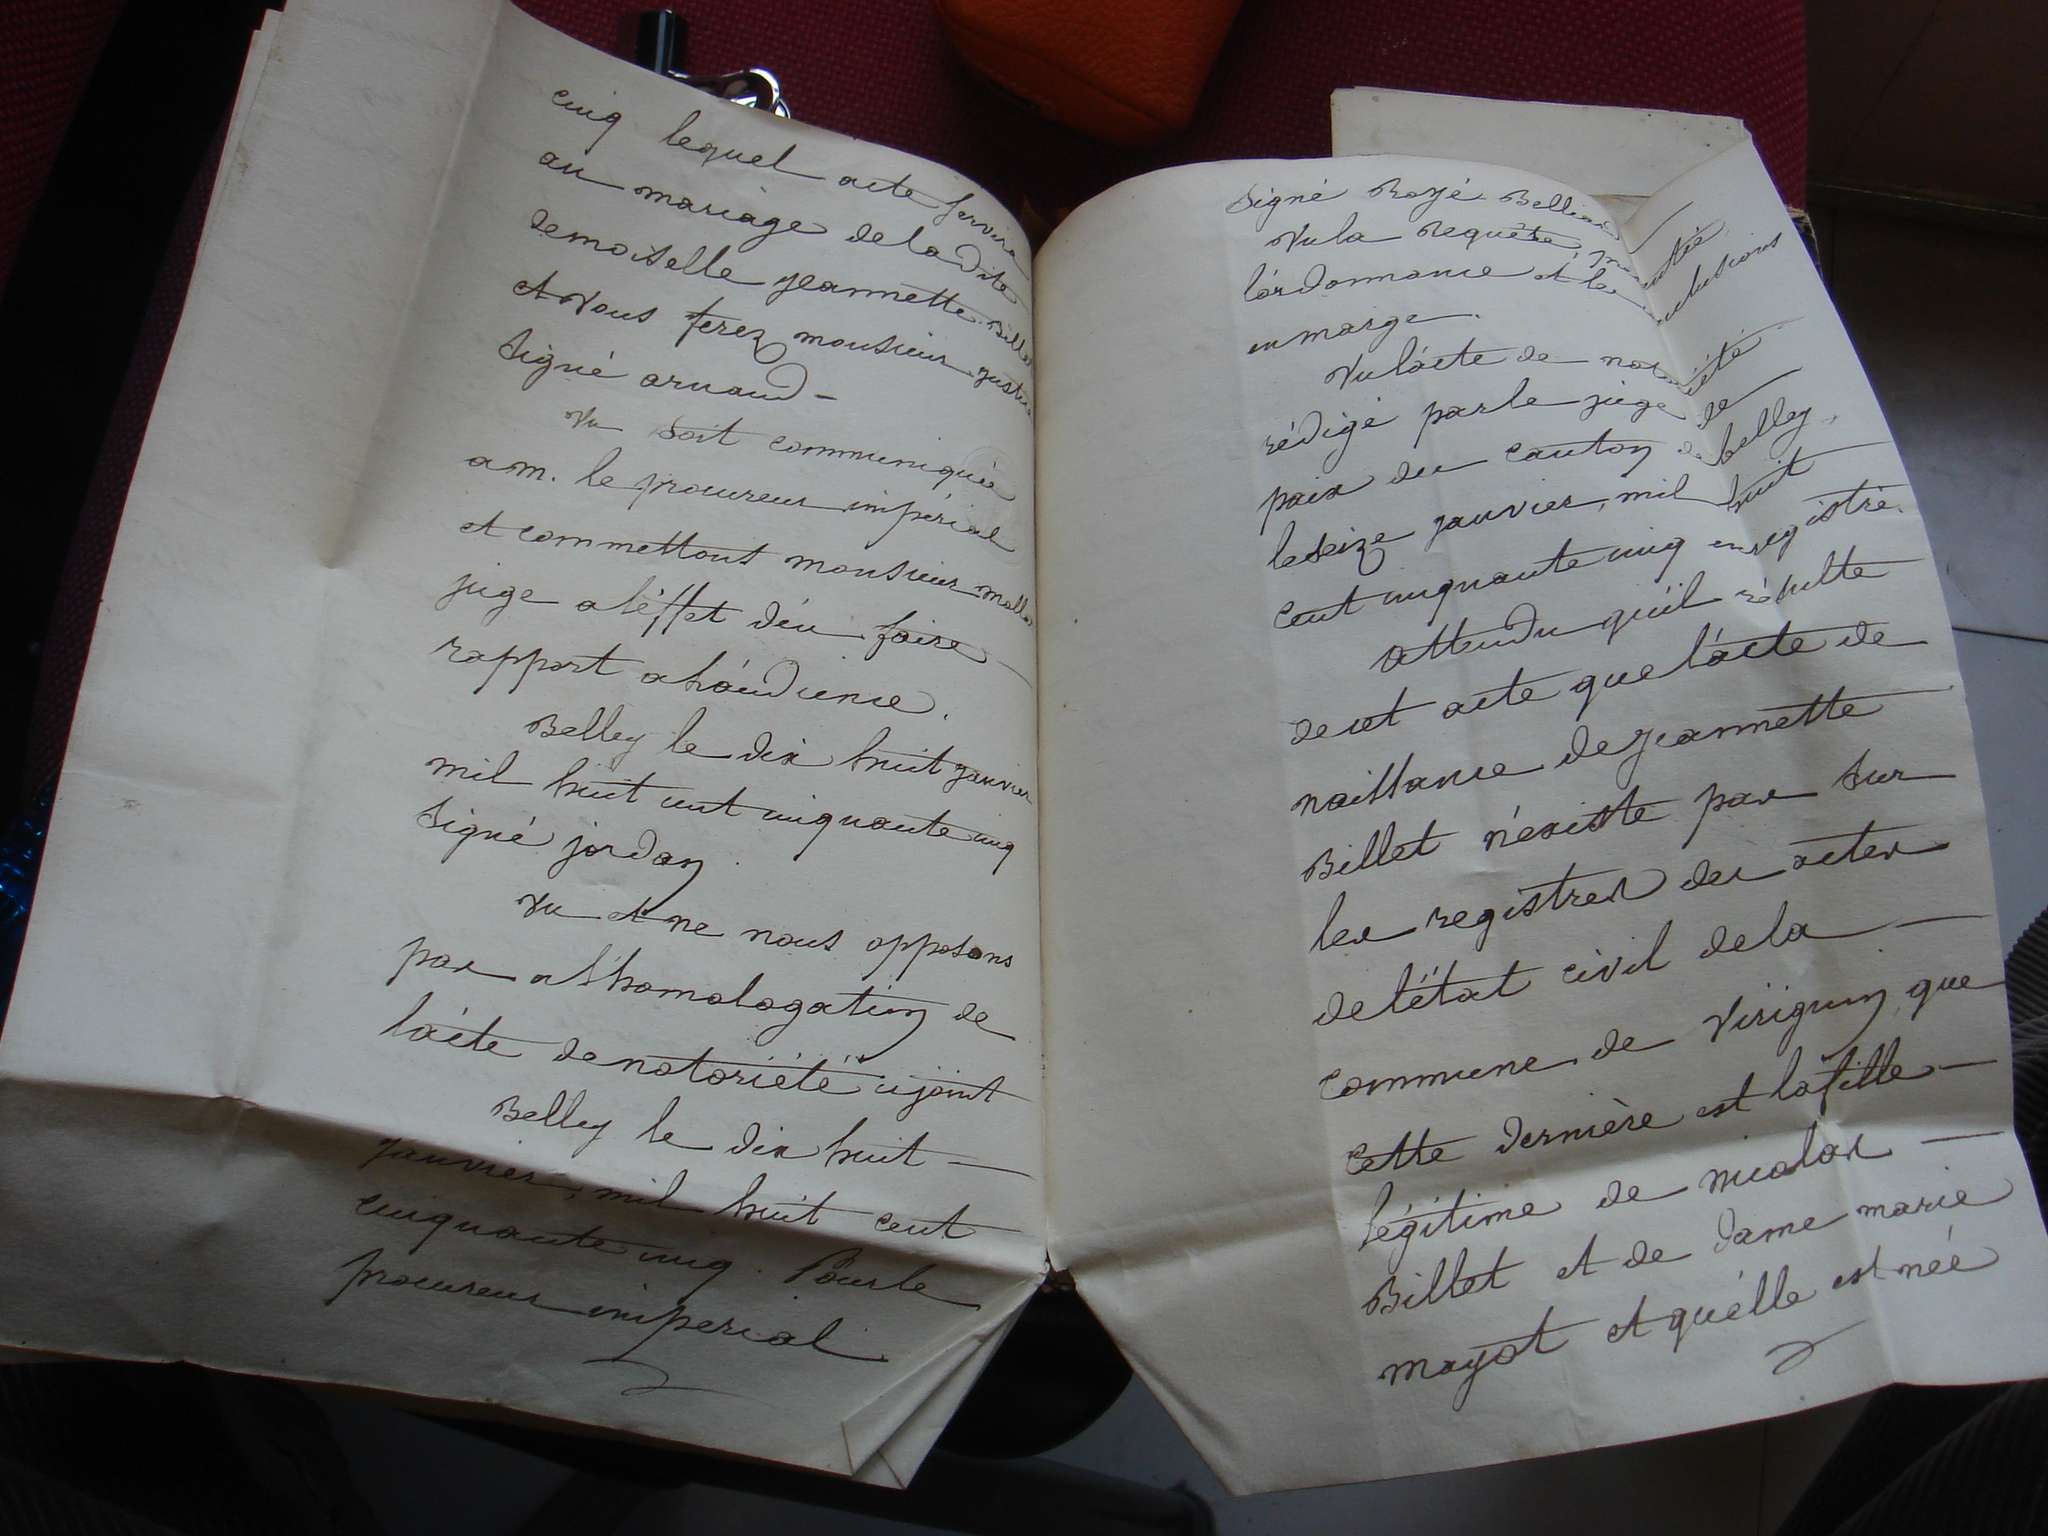 cinq lequel acte servira
au mariage de la dite
demoiselle jeannette Billet
et vous ferez monsieur justice
signé arnaud —
vu soit communiqué
a m. le procureur impérial
et commettons monsieur
juge a léffet d'en faire —
rapport a l'audience.
Belley le dix huit janvier
mil huit cent cinquante cinq
signé jordan.
vu et ne nous opposons
pas a l'homologation de
l'acte de notoriété ci joint
Belley le dix huit —
janvier, mil huit cent
cinquante cinq. Pour le
procureur impérial
signé Royé Belliard
Vu la requête
l'ordonnance et les conclusions
en marge.
Vu lácte de notoriété
rédigé par le juge de
paix du canton de belley,
le seize janvier, mil huit
cent cinquante cinq enregistré.
attendu qu'il résulte
de cet acte que l'acte de
naissance de jeannette
Billet n'existe pas sur
les registres des actes
de l'état civil de la —
commune de Virignin, que
cette dernière est la fille —
légitime de nicolas —
Billet et de dame marie
mayot et qu'elle est née